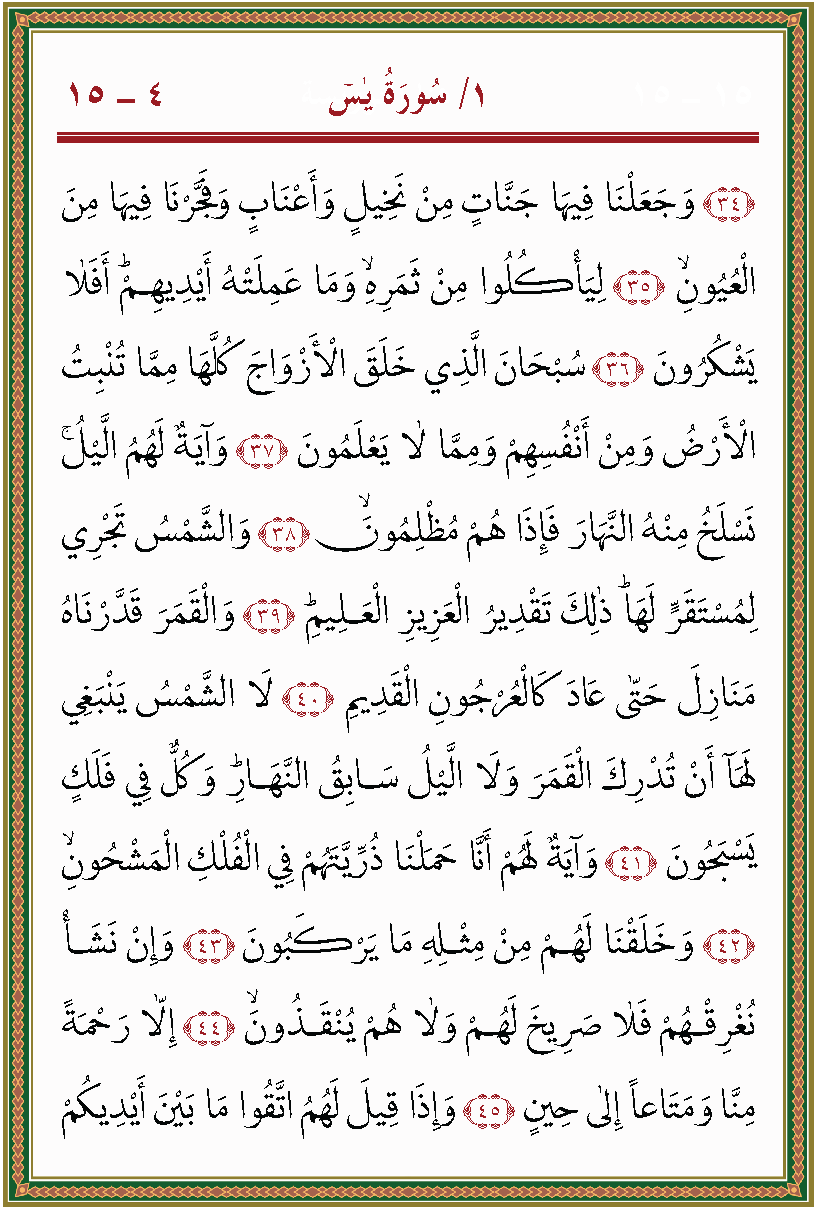 ١/ سُورَةُ يٰسٓ ٤ - ١٥
﴿٣٤﴾ وَجَعَلْنَا فِيهَا جَنَّاتٍ مِنْ نَخِيلٍ وَأَعْنَابٍ وَفَجَّرْنَا فِيهَا مِنَ
الْعُيُونِۙ ﴿٣٥﴾ لِيَأْكُلُوا مِنْ ثَمَرِهِۙ وَمَا عَمِلَتْهُ أَيْدِيهِمْۜ أَفَلَا
يَشْكُرُونَ ﴿٣٦﴾ سُبْحَانَ الَّذِي خَلَقَ الْأَزْوَاجَ كُلَّهَا مِمَّا تُنْبِتُ
الْأَرْضُ وَمِنْ أَنْفُسِهِمْ وَمِمَّا لَا يَعْلَمُونَ ﴿٣٧﴾ وَآيَةٌ لَهُمُ الَّيْلُۚ
نَسْلَخُ مِنْهُ النَّهَارَ فَإِذَا هُمْ مُظْلِمُونَۙ ﴿٣٨﴾ وَالشَّمْسُ تَجْرِي
لِمُسْتَقَرٍّ لَهَاۜ ذٰلِكَ تَقْدِيرُ الْعَزِيزِ الْعَلِيمِۜ ﴿٣٩﴾ وَالْقَمَرَ قَدَّرْنَاهُ
مَنَازِلَ حَتّٰى عَادَ كَالْعُرْجُونِ الْقَدِيمِ ﴿٤٠﴾ لَا الشَّمْسُ يَنْبَغِي
لَهَآ أَنْ تُدْرِكَ الْقَمَرَ وَلَا الَّيْلُ سَابِقُ النَّهَارِۜ وَكُلٌّ فِي فَلَكٍ
يَسْبَحُونَ ﴿٤١﴾ وَآيَةٌ لَهُمْ أَنَّا حَمَلْنَا ذُرِّيَّتَهُمْ فِي الْفُلْكِ الْمَشْحُونِۙ
﴿٤٢﴾ وَخَلَقْنَا لَهُمْ مِنْ مِثْلِهِ مَا يَرْكَبُونَ ﴿٤٣﴾ وَإِنْ نَشَأْ
نُغْرِقْهُمْ فَلَا صَرِيخَ لَهُمْ وَلَا هُمْ يُنْقَذُونَۙ ﴿٤٤﴾ إِلَّا رَحْمَةً
مِنَّا وَمَتَاعاً إِلٰى حِينٍ ﴿٤٥﴾ وَإِذَا قِيلَ لَهُمُ اتَّقُوا مَا بَيْنَ أَيْدِيكُمْ